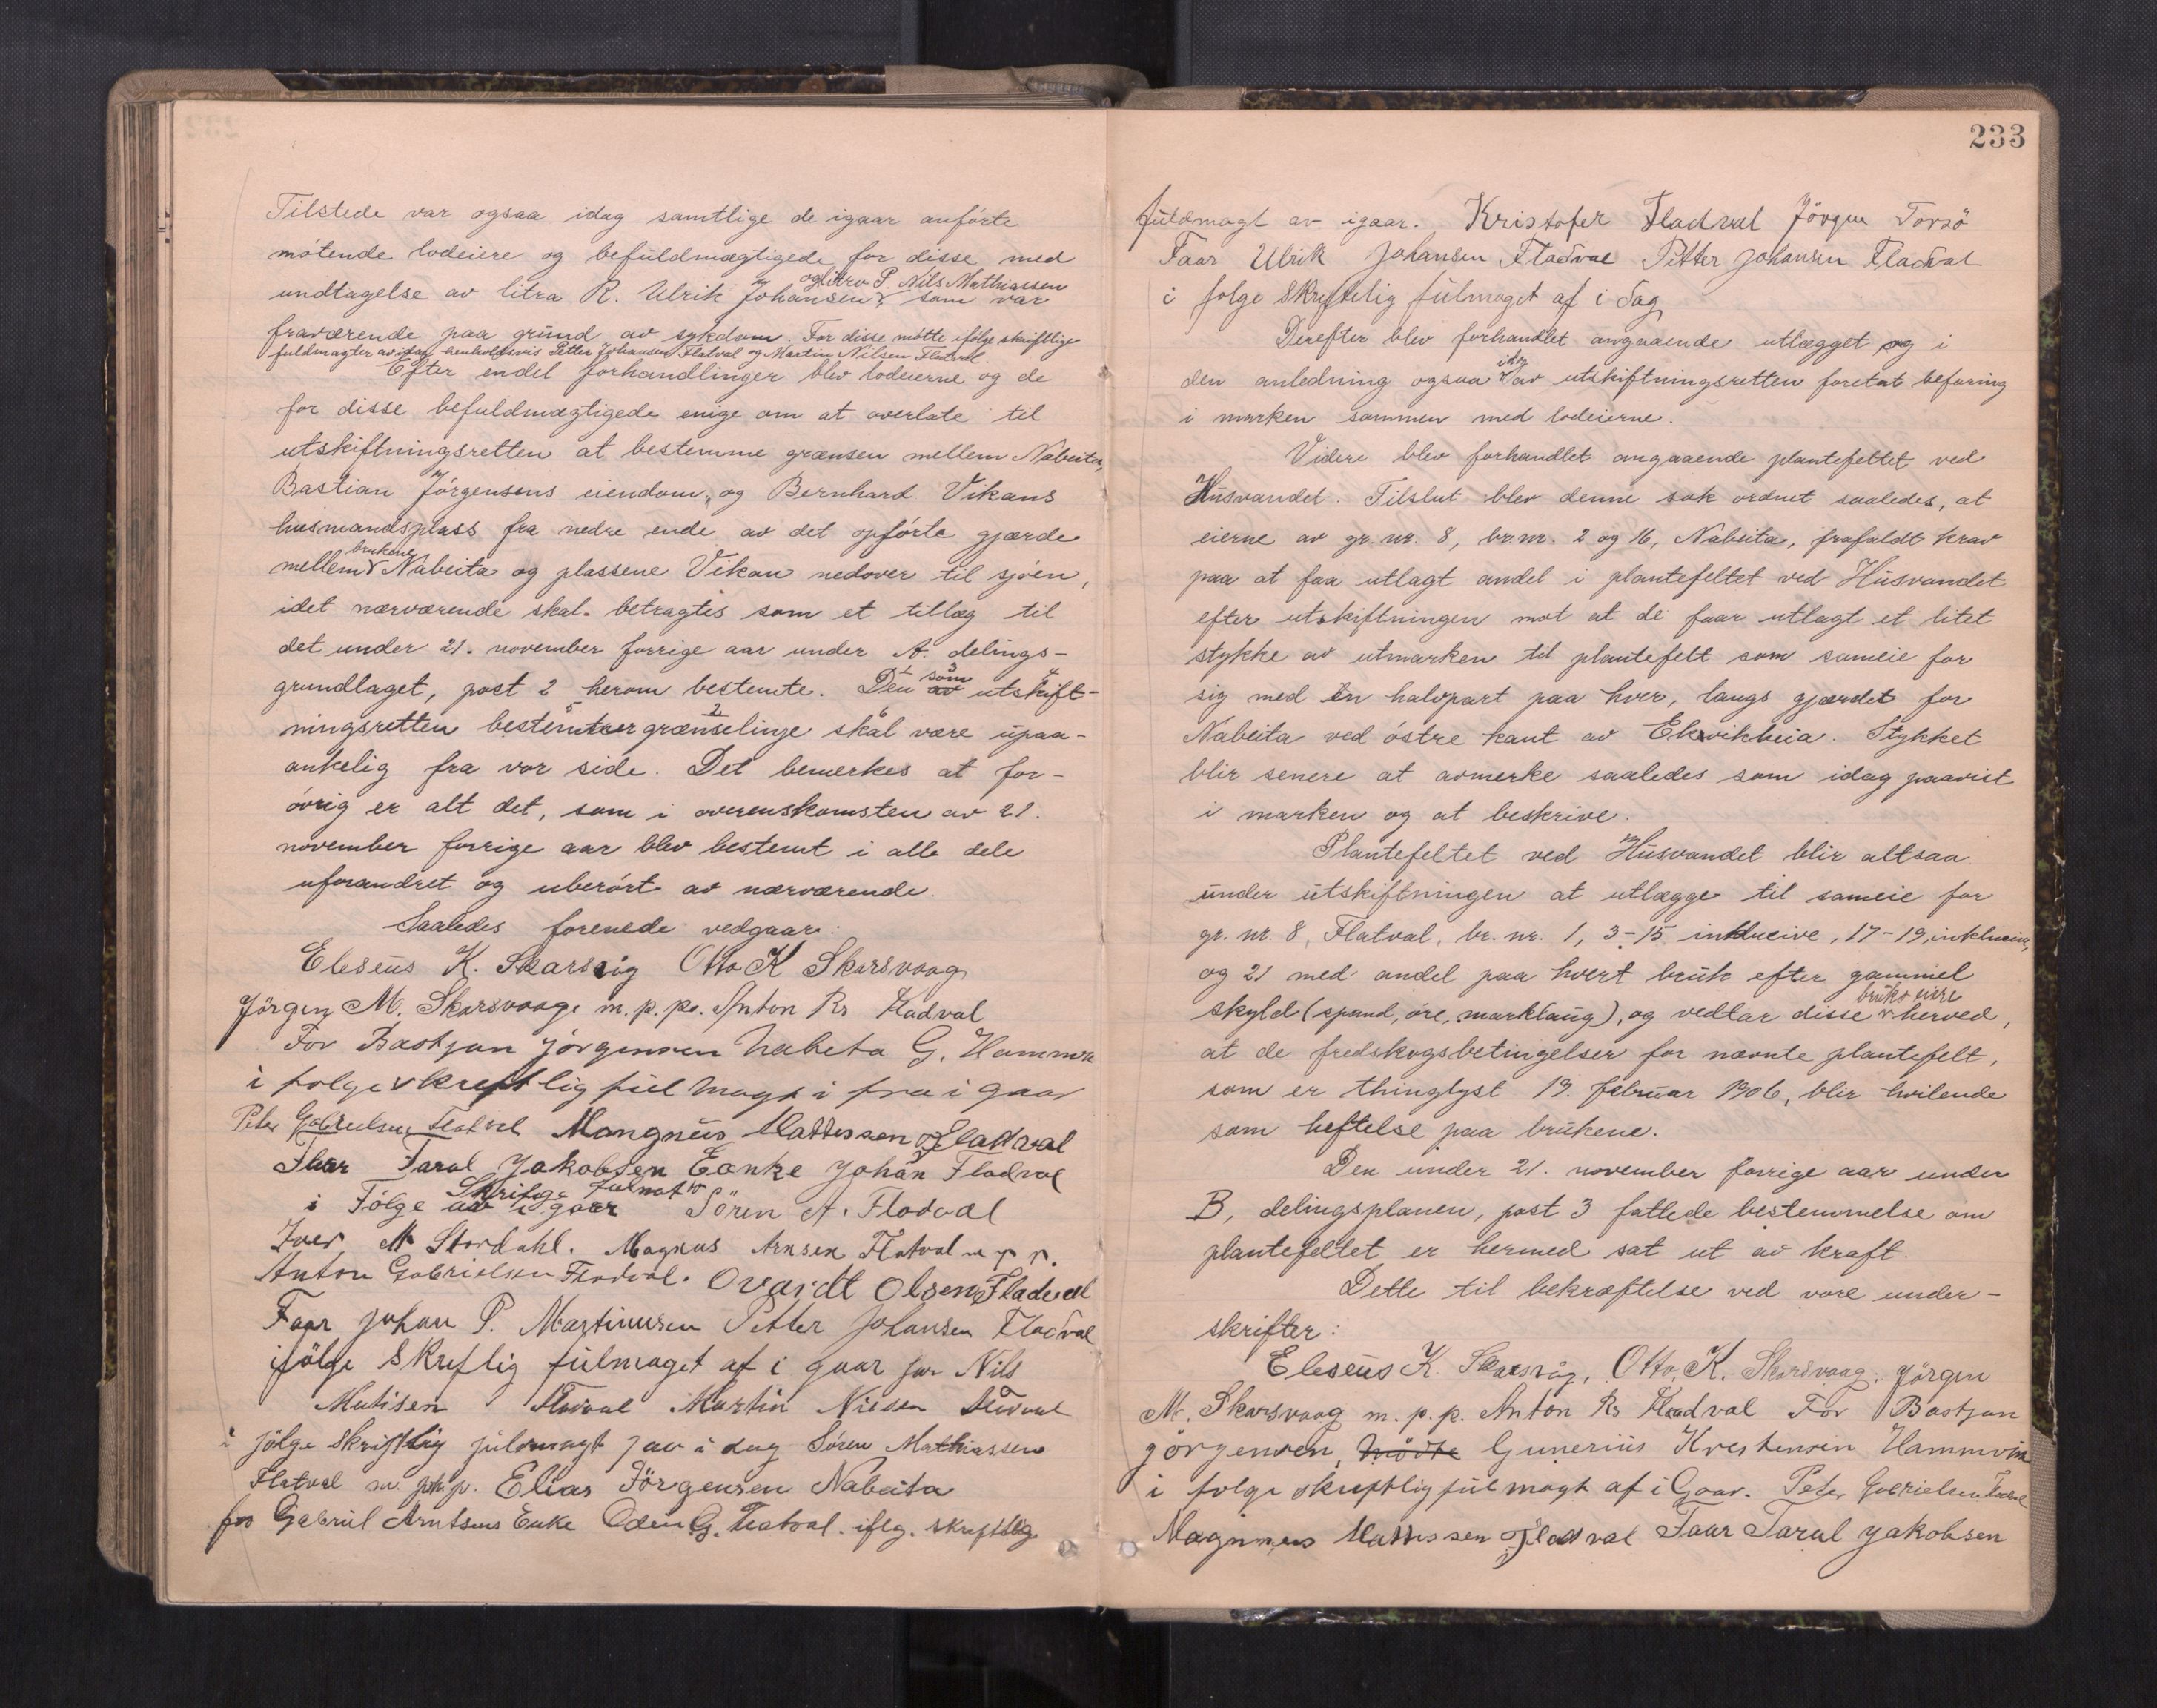 Tilstede var ogsaa idag samtlige de igaar anförte
mötende lodeiere og befuldmægtigede for disse med
og litra P. Nils Mathiassen
undtagelse av litra R. Ulrik Johansen som var
fraværende paa grund av sykdom. For disse mötte ifölge skriftlige
fuldmagter av idag henholdsvis Petter Johansen Flatval og Martin Nilsen Flatval.
Efter endel forhandlinger blev lodeierne og de
for disse befuldmægtigede enige om at overlate til
utskiftningsretten at bestemme grænsen mellem Nabeita,
Bastian Jörgensens eiendom, og Bernhard Vikans
husmandsplass fra nedre ende av det opförte gjærde
brukene
mellem Nabeita og plassene Vikan nedover til sjöen,
idet nærværende skal betragtes som et tillæg til
det under 21. november forrige aar under A. delings-
grundlaget, post 2 herom bestemte. Den som av utskift-
ningsretten bestemmer grænselinje skal være upaa-
ankelig fra vor side. Det bemerkes at for-
övrig er alt det, som i overenskomsten av 21.
november forrige aar blev bestemt i alle dele
uforandret og uberört av nærværende.
Saaledes forenede vedgaar:
Eleseus K. Skarsvåg Otto K Skarsvoag
Jörgen M. Skarsvaag. m. p. p. Anton Rs Fladval
For Bastjan Jörgensen Nabeta G. Hammvn
i folge skreftlig fulmagt i fra i gaar
Peter Gabrielsen Flatval Mangnus Mattissen Fladval
Faar Taral Jakobsen Eanke Johan Fladval
Skriftge fulmakt
i Fölge av i gaar Sören A. Flodval
Iver M Stordahl. Magnus Arnsen Flatval m p p.
Anton Gabrielsen Flodval. Ovardt Olsen Fladval
Faar Johan P. Martinusen Petter Johansen Fladval
ifölge Skreflig fulmaget af i gaar for Nils
Matisen Fladval Martin Nilsen Fladval
i fölge skriftlig fulmagt av i dag Sören Mathiassen
Flatval m. p. p. Elias Jörgensen Nabeita
for Gabriel Arntsens Enke Oden G. Flatval. iflg. skreftlig
233
fuldmagt av igaar. Kristofer Fladval Jörgen Torsö
Faar Ulrik Johansen Fladval Petter Johansen Fladval
i folge Skreftelig fulmaget af i dag
Derefter blev forhandlet angaaende utlægget og i
idag
den anledning ogsaa av utskiftningsretten foretat befaring
i marken sammen med lodeierne.
Videre blev forhandlet angaaende plantefeltet ved
Husvandet. Tilslut blev denne sak ordnet saaledes, at
eierne av gr. nr. 8, br. nr. 2 og 16, Nabeita, frafaldt krav
paa at faa utlagt andel i plantefeltet ved Husvandet
efter utskiftningen mot at de faar utlagt et litet
stykke av utmarken til plantefelt som sameie for
sig med en halvpart paa hver, langs gjærdet for
Nabeita ved östre kant av Ekvikheia. Stykket
blir senere at avmerke saaledes som idag paavist
i marken og at beskrive.
Plantefeltet ved Husvandet blir altsaa
under utskiftningen at utlægge til sameie for
gr. nr. 8, Flatval, br. nr. 1, 3-15 inklusive, 17-19, inklusive,
og 21 med andel paa hvert bruk efter gammel
bruks eiere
skyld (spand, öre, marklaug), og vedtar disse herved,
at de fredskogsbetingelser for nævnte plantefelt,
som er thinglyst 19. februar 1906, blir hvilende
som heftelse paa brukene.
Den under 21. november forrige aar under
B, delingsplanen, post 3 fattede bestemmelse om
plantefeltet er hermed sat ut av kraft.
Dette til bekræftelse ved vore under-
skrifter:
Eleseus K. Skarsvåg, Otto. K. Skarsvoag. Jörgen
M. Skarsvaag m. p. p. Anton Rs Fladval For Bastjan
Jörgensen, mödte Gunerius Krestensen Hammvin
i folge skreftlig fulmagt af i Gaar. Peter Gabrielsen Flatval
Magnnus Mattissen Fladval Faar Taral Jakobsen